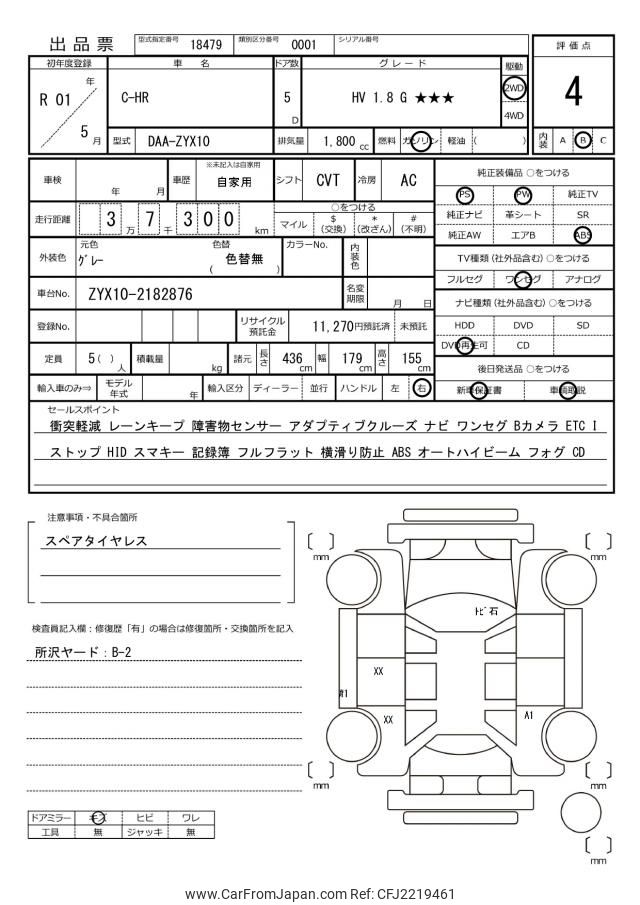 出品票 型式指定番号 18479 類別区分番号 0001 シリアル番号
評価点
4
内装 A B C
初年度登録 車名 ドア数 グレード 駆動
R 01 年 5 月
C-HR 5 D HV 1.8 G ★★★ 2WD 4WD
型式 DAA-ZYX10 排気量 1,800 cc 燃料 ガソリン 軽油 ( )
車検 年 月 車歴 ※未記入は自家用 自家用 シフト CVT 冷房 AC
走行距離 3 万 7 千 3 0 0 km
○をつける
マイル $(交換) *(改ざん) #(不明)
外装色 元色 グレー 色替 ( 色替無 ) カラーNo. 内装色
車台No. ZYX10-2182876 名変期限 月 日
登録No. リサイクル預託金 11,270円預託済 未預託
定員 5( )人 積載量 kg 諸元 長さ 436 cm 幅 179 cm 高さ 155 cm
輸入車のみ⇒ モデル年式 年 輸入区分 ディーラー 並行 ハンドル 左 右
純正装備品 ○をつける
PS PW 純正TV
純正ナビ 革シート SR
純正AW エアB ABS
TV種類 (社外品含む) ○をつける
フルセグ ワンセグ アナログ
ナビ種類 (社外品含む) ○をつける
HDD DVD SD
DVD再生可 CD
後日発送品 ○をつける
新車保証書 車輌取説
セールスポイント
衝突軽減 レーンキープ 障害物センサー アダプティブクルーズ ナビ ワンセグ Bカメラ ETC I
ストップ HID スマキー 記録簿 フルフラット 横滑り防止 ABS オートハイビーム フォグ CD
注意事項・不具合箇所
スペアタイヤレス
検査員記入欄：修復歴「有」の場合は修復箇所・交換箇所を記入
所沢ヤード：B-2
〔 〕mm
〔 〕mm
トビ石
XX
XX
A1
〔 〕mm
〔 〕mm
〔 〕mm
ドアミラー キズ ヒビ ワレ
工具 無 ジャッキ 無
www.CarFromJapan.com Ref: CFJ2219461